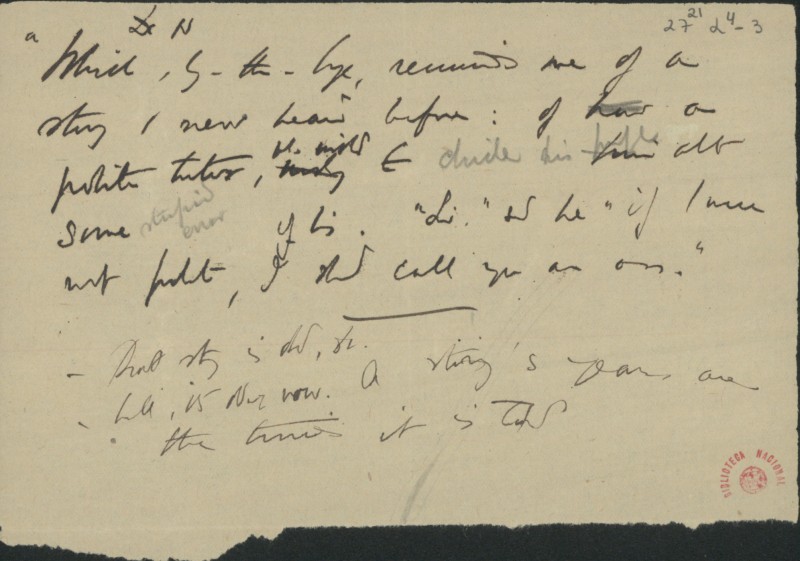 27 21 D4-3
a Dr N
Which, by-the-bye, reminds me of a
story I never heard before: of how a
polite tutor, to chide his pupil
some stupid error of his. "Sir." sd he "if I were
not polite, I shd call you an ass."
- That story is old, sir.
- Well, it's older now. A story's years are
the times it is told
BIBLIOTECA NACIONAL